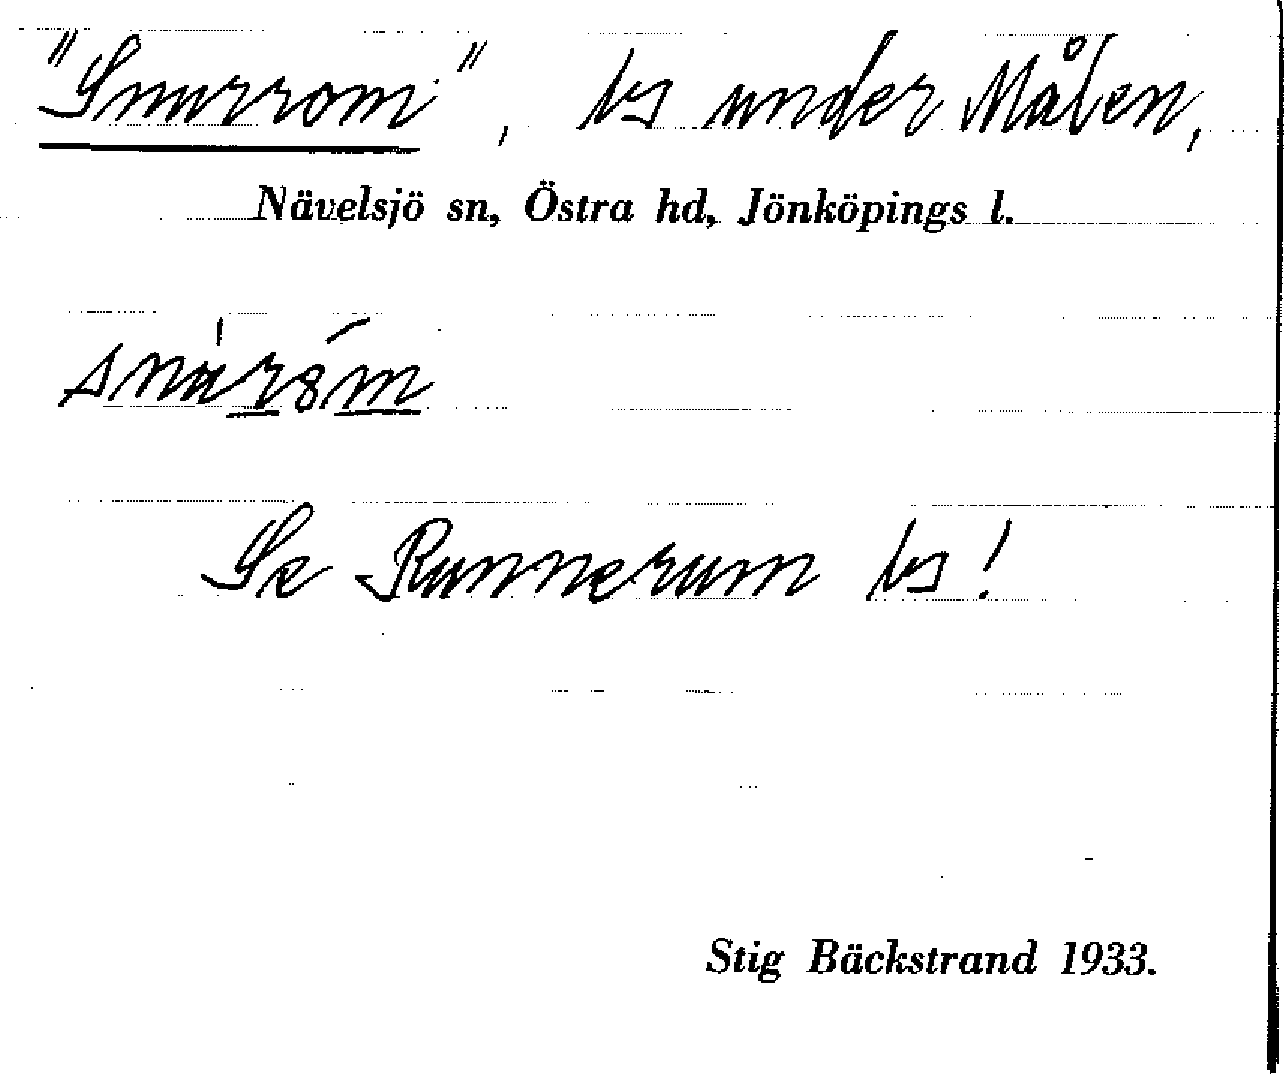 "Snurrom", ls under Målen,
Nävelsjö sn, Östra hd, Jönköpings l.
snu̍r8́m
Se Runnerum ls!
Stig Bäckstrand 1933.